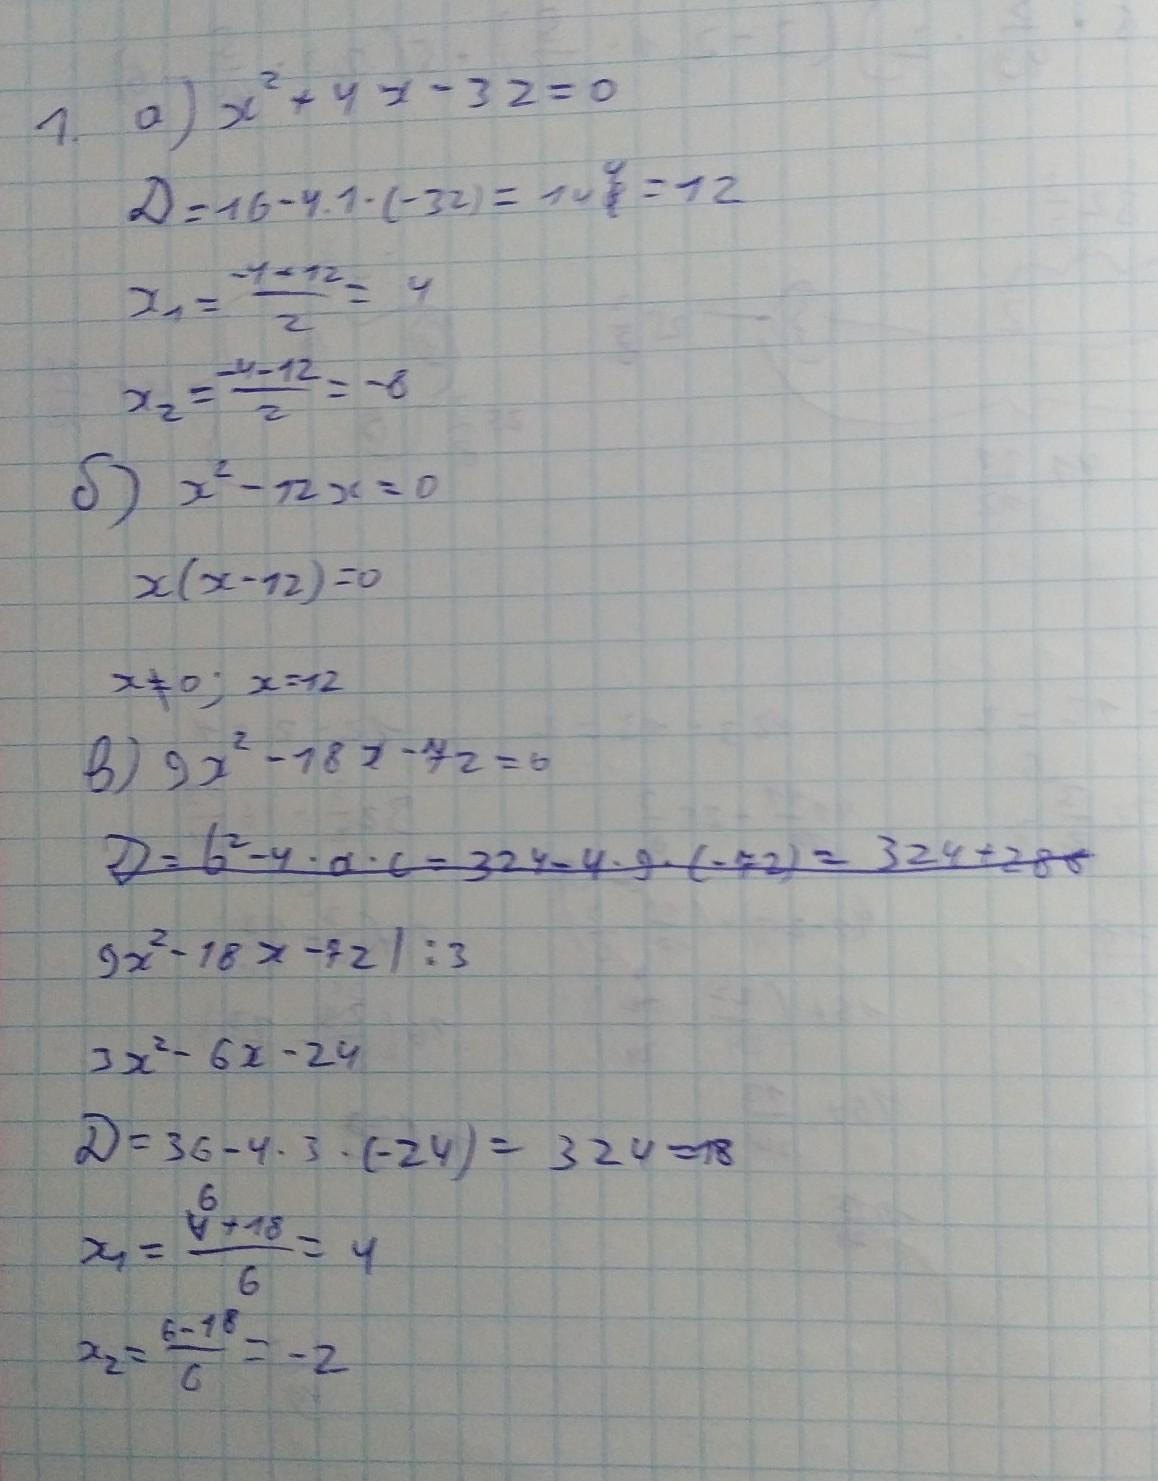 1. а) x² + 4x - 32 = 0
D = 16 - 4 · 1 · (-32) = 144 = 12
x₁ = (-4 + 12)/2 = 4
x₂ = (-4 - 12)/2 = -8
б) x² - 12x = 0
x(x - 12) = 0
x ≠ 0; x = 12
в) 9x² - 18x - 72 = 0
D = b² - 4 · a · c = 324 - 4 · 9 · (-72) = 324 + 288
9x² - 18x - 72 | : 3
3x² - 6x - 24
D = 36 - 4 · 3 · (-24) = 324 = 18
x₁ = (6 + 18)/6 = 4
x₂ = (6 - 18)/6 = -2